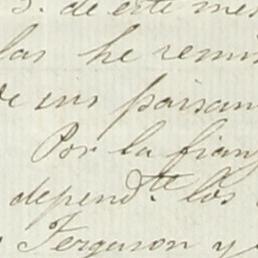 3. de este mes
las he remi
de sus paisan
Por la fian
depend.te los
Ferguson y